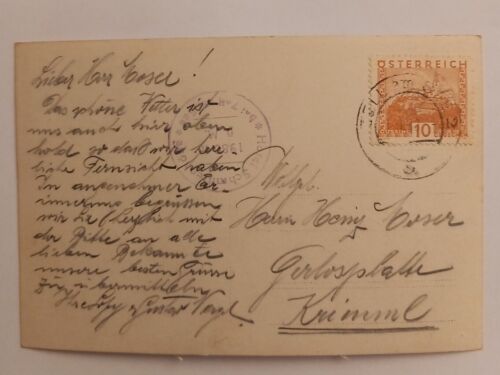 Lieber Herr Moser!
Das schöne Wetter ist
uns auch hier oben
hold so daß wir herr
liche Fernsicht haben
In angenehmer Er
innerung begrüssen
wir Sie herzlich mit
der Bitte an alle
lieben Bekannte
unsere besten Grüsse
zu übermitteln
Gustav
ÖSTERREICH
10
Herrn Heinz Moser
Gerlosplatte
Krimml